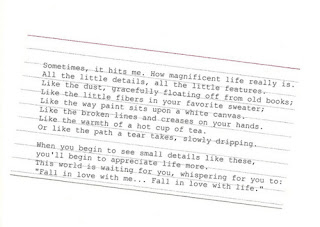 Sometimes, it hits me. How magnificent life really is.
All the little details, all the little features.
Like the dust, gracefully floating off from old books;
Like the little fibers in your favorite sweater;
Like the way paint sits upon a white canvas.
Like the broken lines and creases on your hands.
Like the warmth of a hot cup of tea.
Or like the path a tear takes, slowly dripping.
When you begin to see small details like these,
you'll begin to appreciate life more.
This world is waiting for you, whispering for you to:
"Fall in love with me... Fall in love with life."